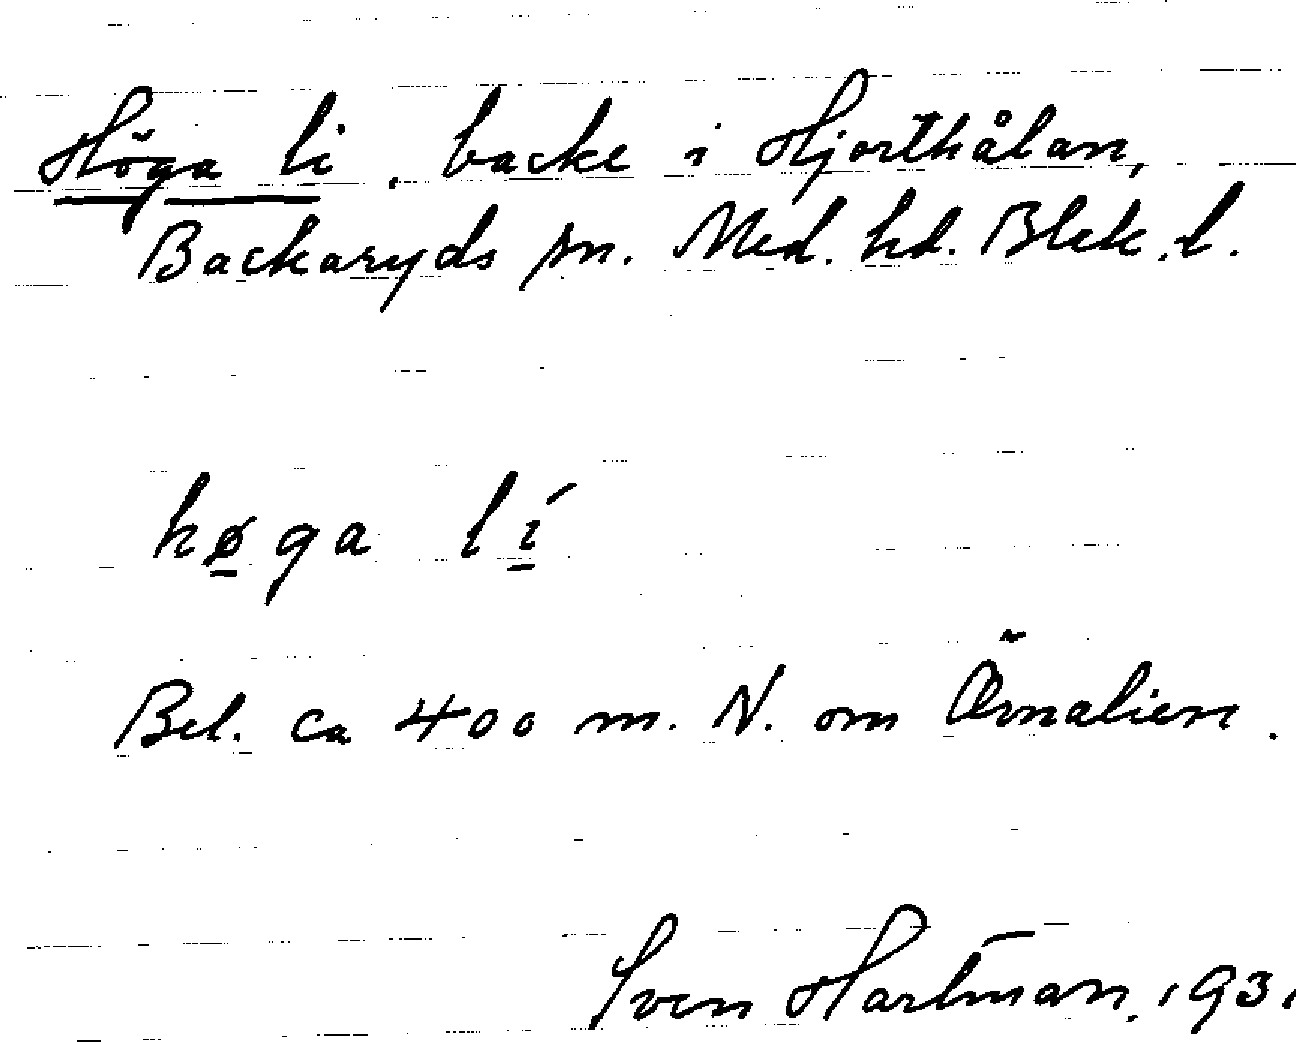 Höga li, backe i Hjorthålan,
Backaryds sn. Med. hd. Blek. l.
høga lí
Bel. ca 400 m. N. om Örnalien.
Sven Hartman. 1931